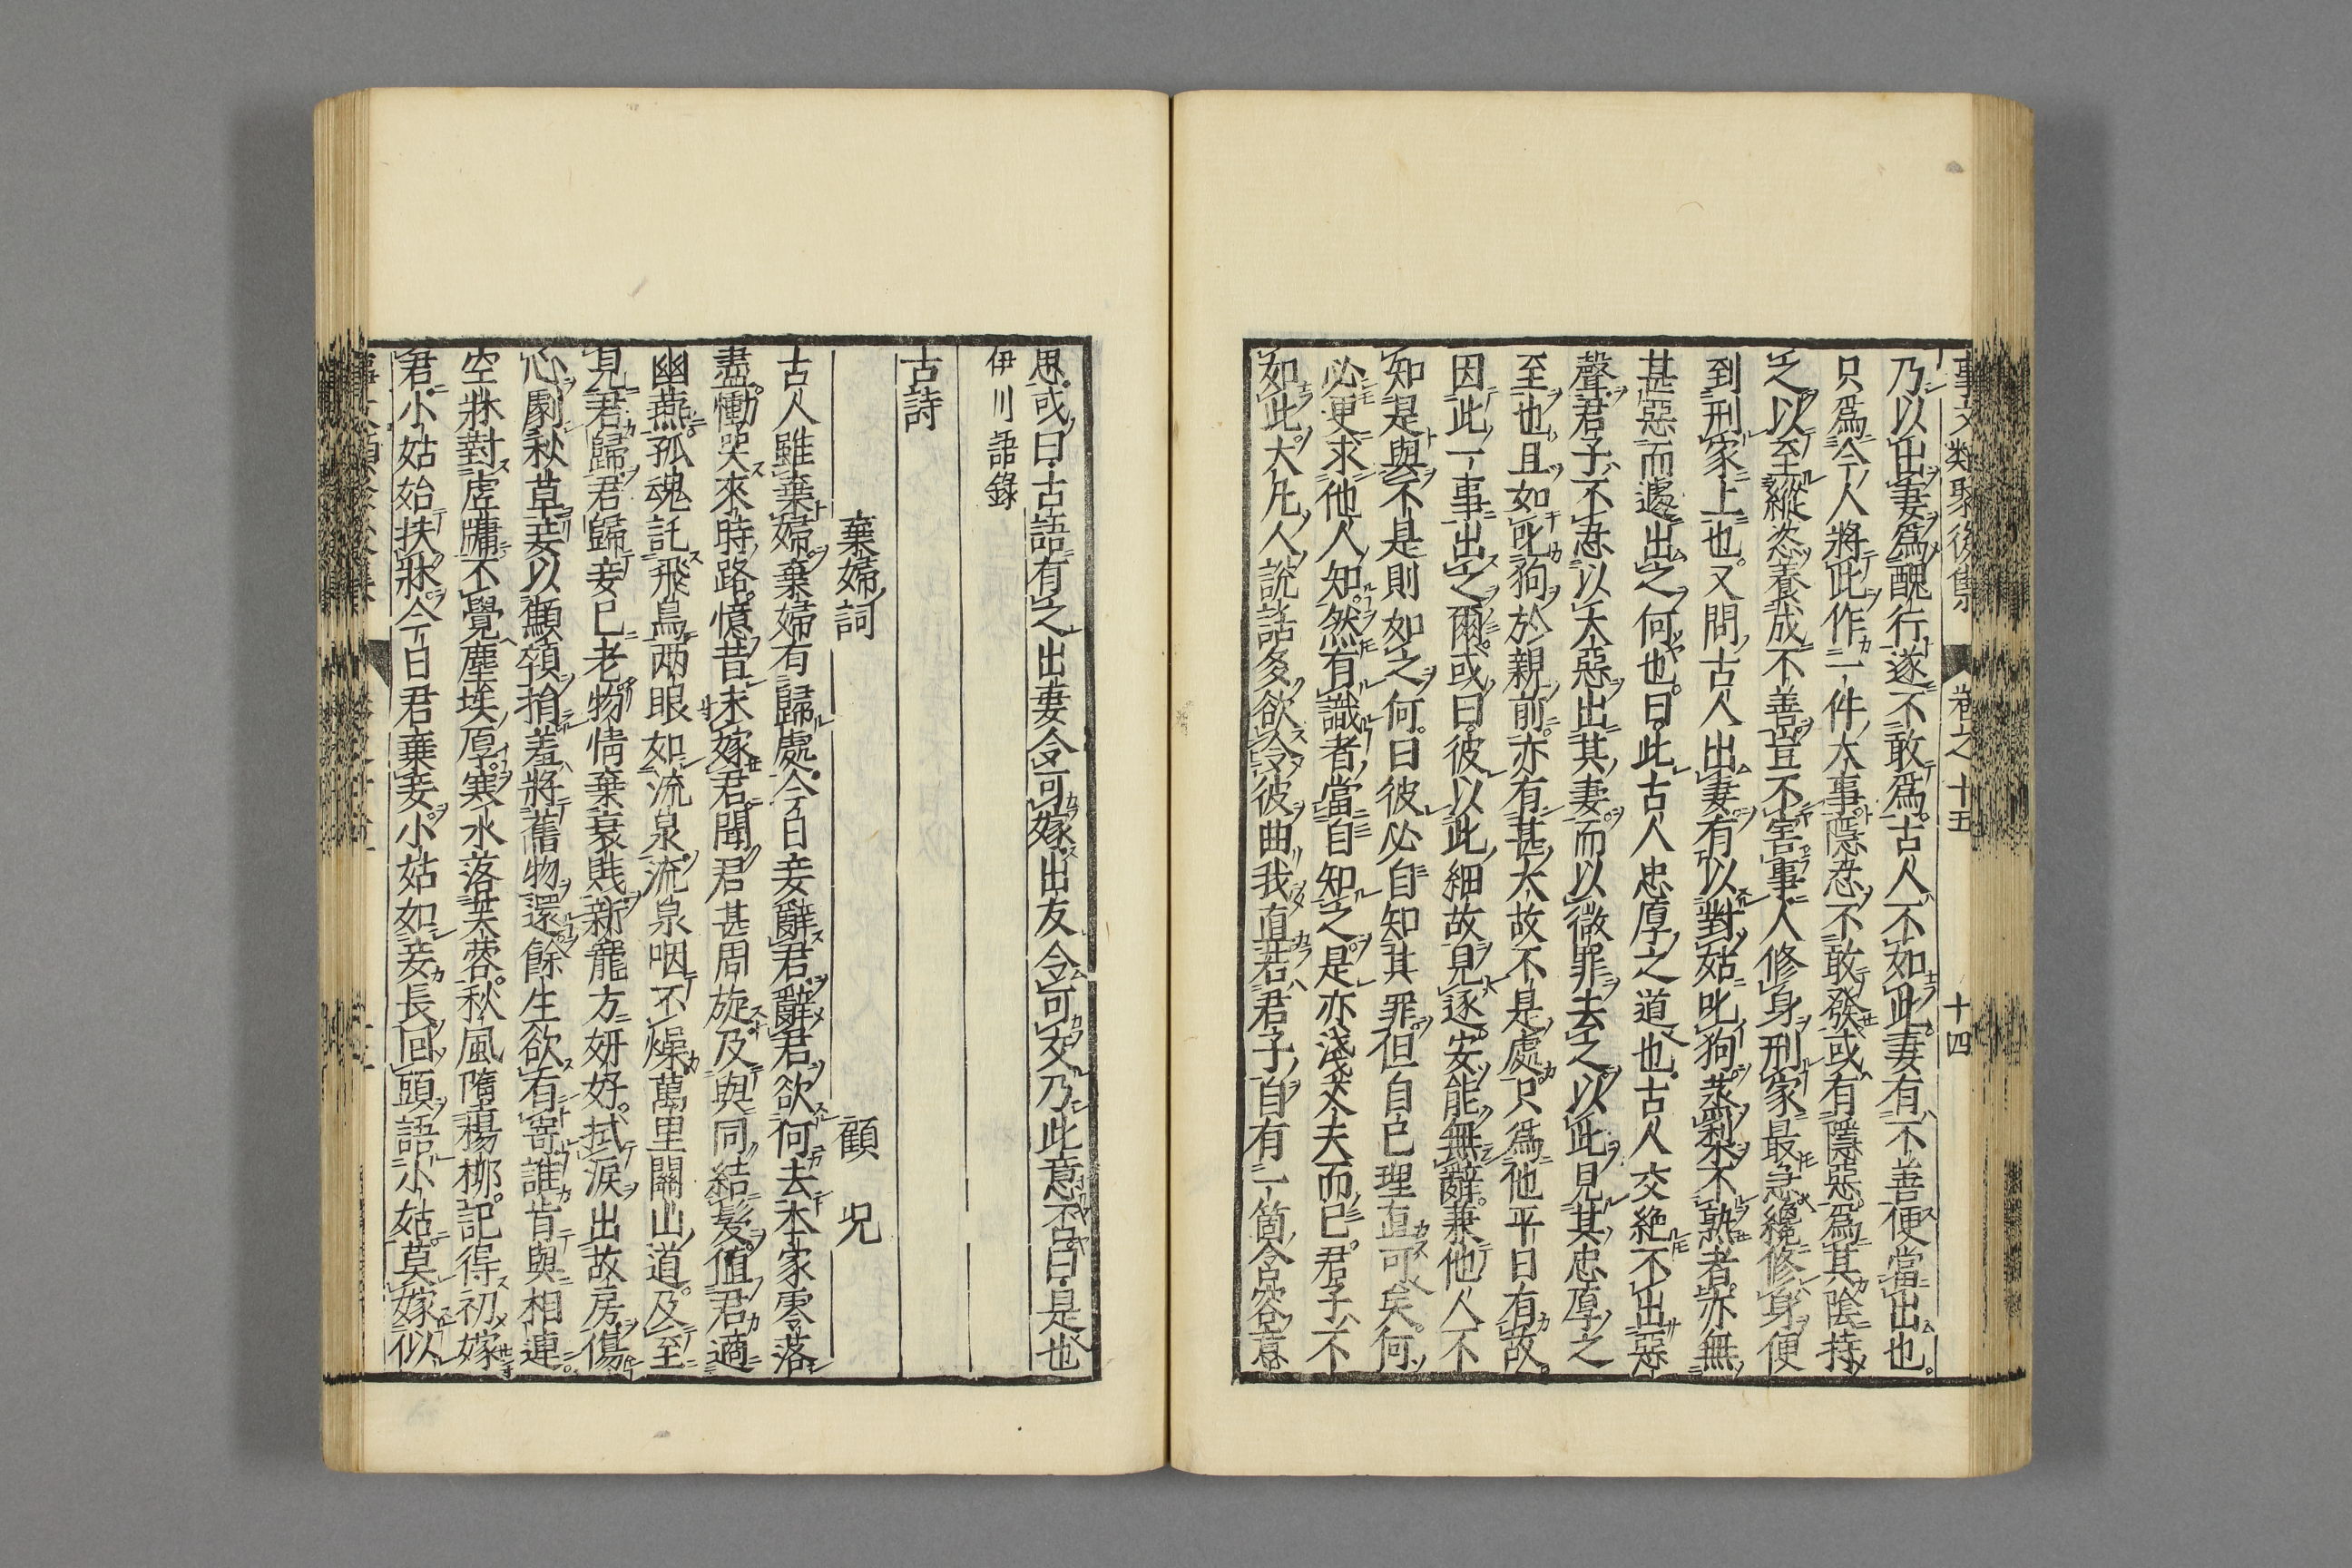 事文類聚後集 卷之十五 十四
乃以出妻爲醜行遂不敢爲古人不如此妻有不善便當出也
只爲今人將此作一件大事隱忍不敢發或有隱惡爲其陰持
之以至縱恣養成不善豈不害事人修身刑家最急纔修身便
到刑家上也又問古人出妻有以對姑叱狗蒸梨不熟者亦無
甚惡而遽出之何也曰此古人忠厚之道也古人交絶不出惡
聲君子不忍以大惡出其妻而以微罪去之以此見其忠厚之
至也且如叱狗於親前亦有甚大故不是處只爲他平日有故
因此一事出之爾或曰彼以此細故見逐安能無辭兼他人不
知是與不是則如之何曰彼必自知其罪但自己理直可矣何
必更求他人知然有識者當自知之是亦淺丈夫而已君子不
如此大凡人說話多欲令彼曲我直若君子自有一箇含容意
思或曰古語有之出妻令可嫁出友令可交乃此意否曰是也
伊川語錄
古詩
棄婦詞 顧況
古人雖棄婦棄婦有歸處今日妾辭君辭君欲何去本家零落
盡慟哭來時路憶昔未嫁君聞君甚周旋及與同結髮值君適
幽燕孤魂託飛鳥兩眼如流泉流泉咽不燥萬里關山道及至
見君歸君歸妾已老物情棄衰賎新寵方妍好拭淚出故房傷
心劇秋草妾以顦顇捐羞將舊物還餘生欲有寄誰肯與相連
空牀對虛牖不覺塵埃厚寒水落芙蓉秋風隋楊柳記得初嫁
君小姑始扶牀今日君棄妾小姑如妾長回頭語小姑莫嫁似